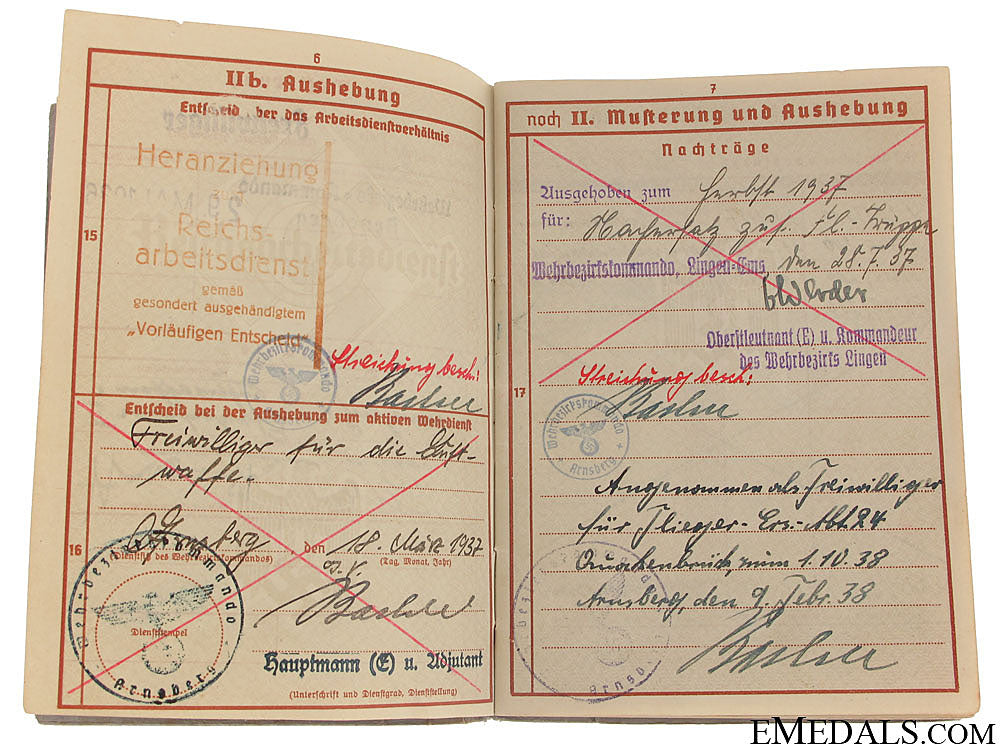 6
IIb. Aushebung
Entscheid der das Arbeitsdienstverhältnis
15
Heranziehung
Reichs-
arbeitsdienst
gemäß
gesondert ausgehändigtem
„Vorläufigen Entscheid“
Wehrbezirkskommando
Streichung besch:
Entscheid bei der Aushebung zum aktiven Wehrdienst
Freiwilliger für die Luft-
waffe.
16
Arnsberg, den 18. März 1937
(Dienstsitz des Wehrbezirkskommandos) (Tag, Monat, Jahr)
Wehrbezirkskommando
Dienststempel
Arnsberg
J.V.
Hauptmann (E) u. Adjutant
(Unterschrift und Dienstgrad, Dienststellung)
7
noch II. Musterung und Aushebung
Nachträge
Ausgehoben zum Herbst 1937
für: zus. Fl.-
Wehrbezirkskommando, Lingen-Ems den 28.7.37
Oberstleutnant (E) u. Kommandeur
des Wehrbezirks Lingen
17
Streichung besch:
Wehrbezirkskommando
Arnsberg
Angenommen als Freiwilliger
für Flieger-Ers.-Abt. 24
Quackenbrück, zum 1.10.38
Arnsberg, den 9. Febr. 38
EMEDALS.COM